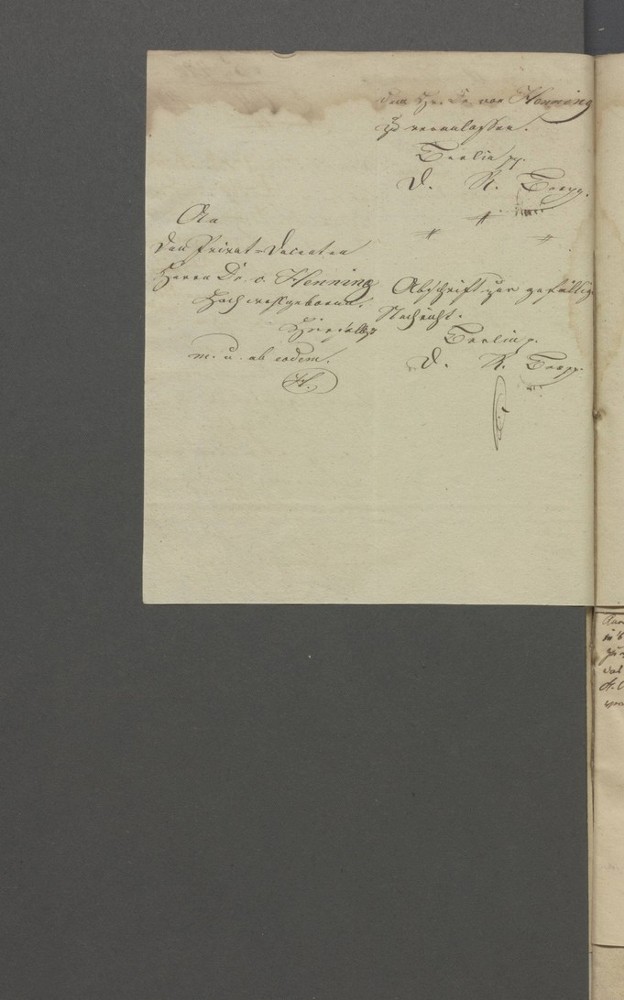 den Hr. Dr. von Henning
zu veranlassen.
Berlin pp.
D. K.
An
den Privat-Docenten
Herrn Dr. v. Henning
Hochwohlgeboren.
Hieselbst
m. u. ab eodem.
H.
Abschrift zur gefällig
Nachricht.
Berlin p.
D. K.